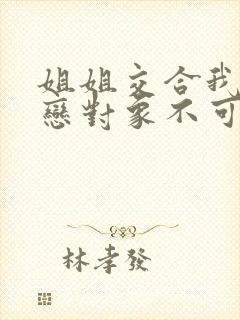 姐姐交合我
戀對象不可
林孝發